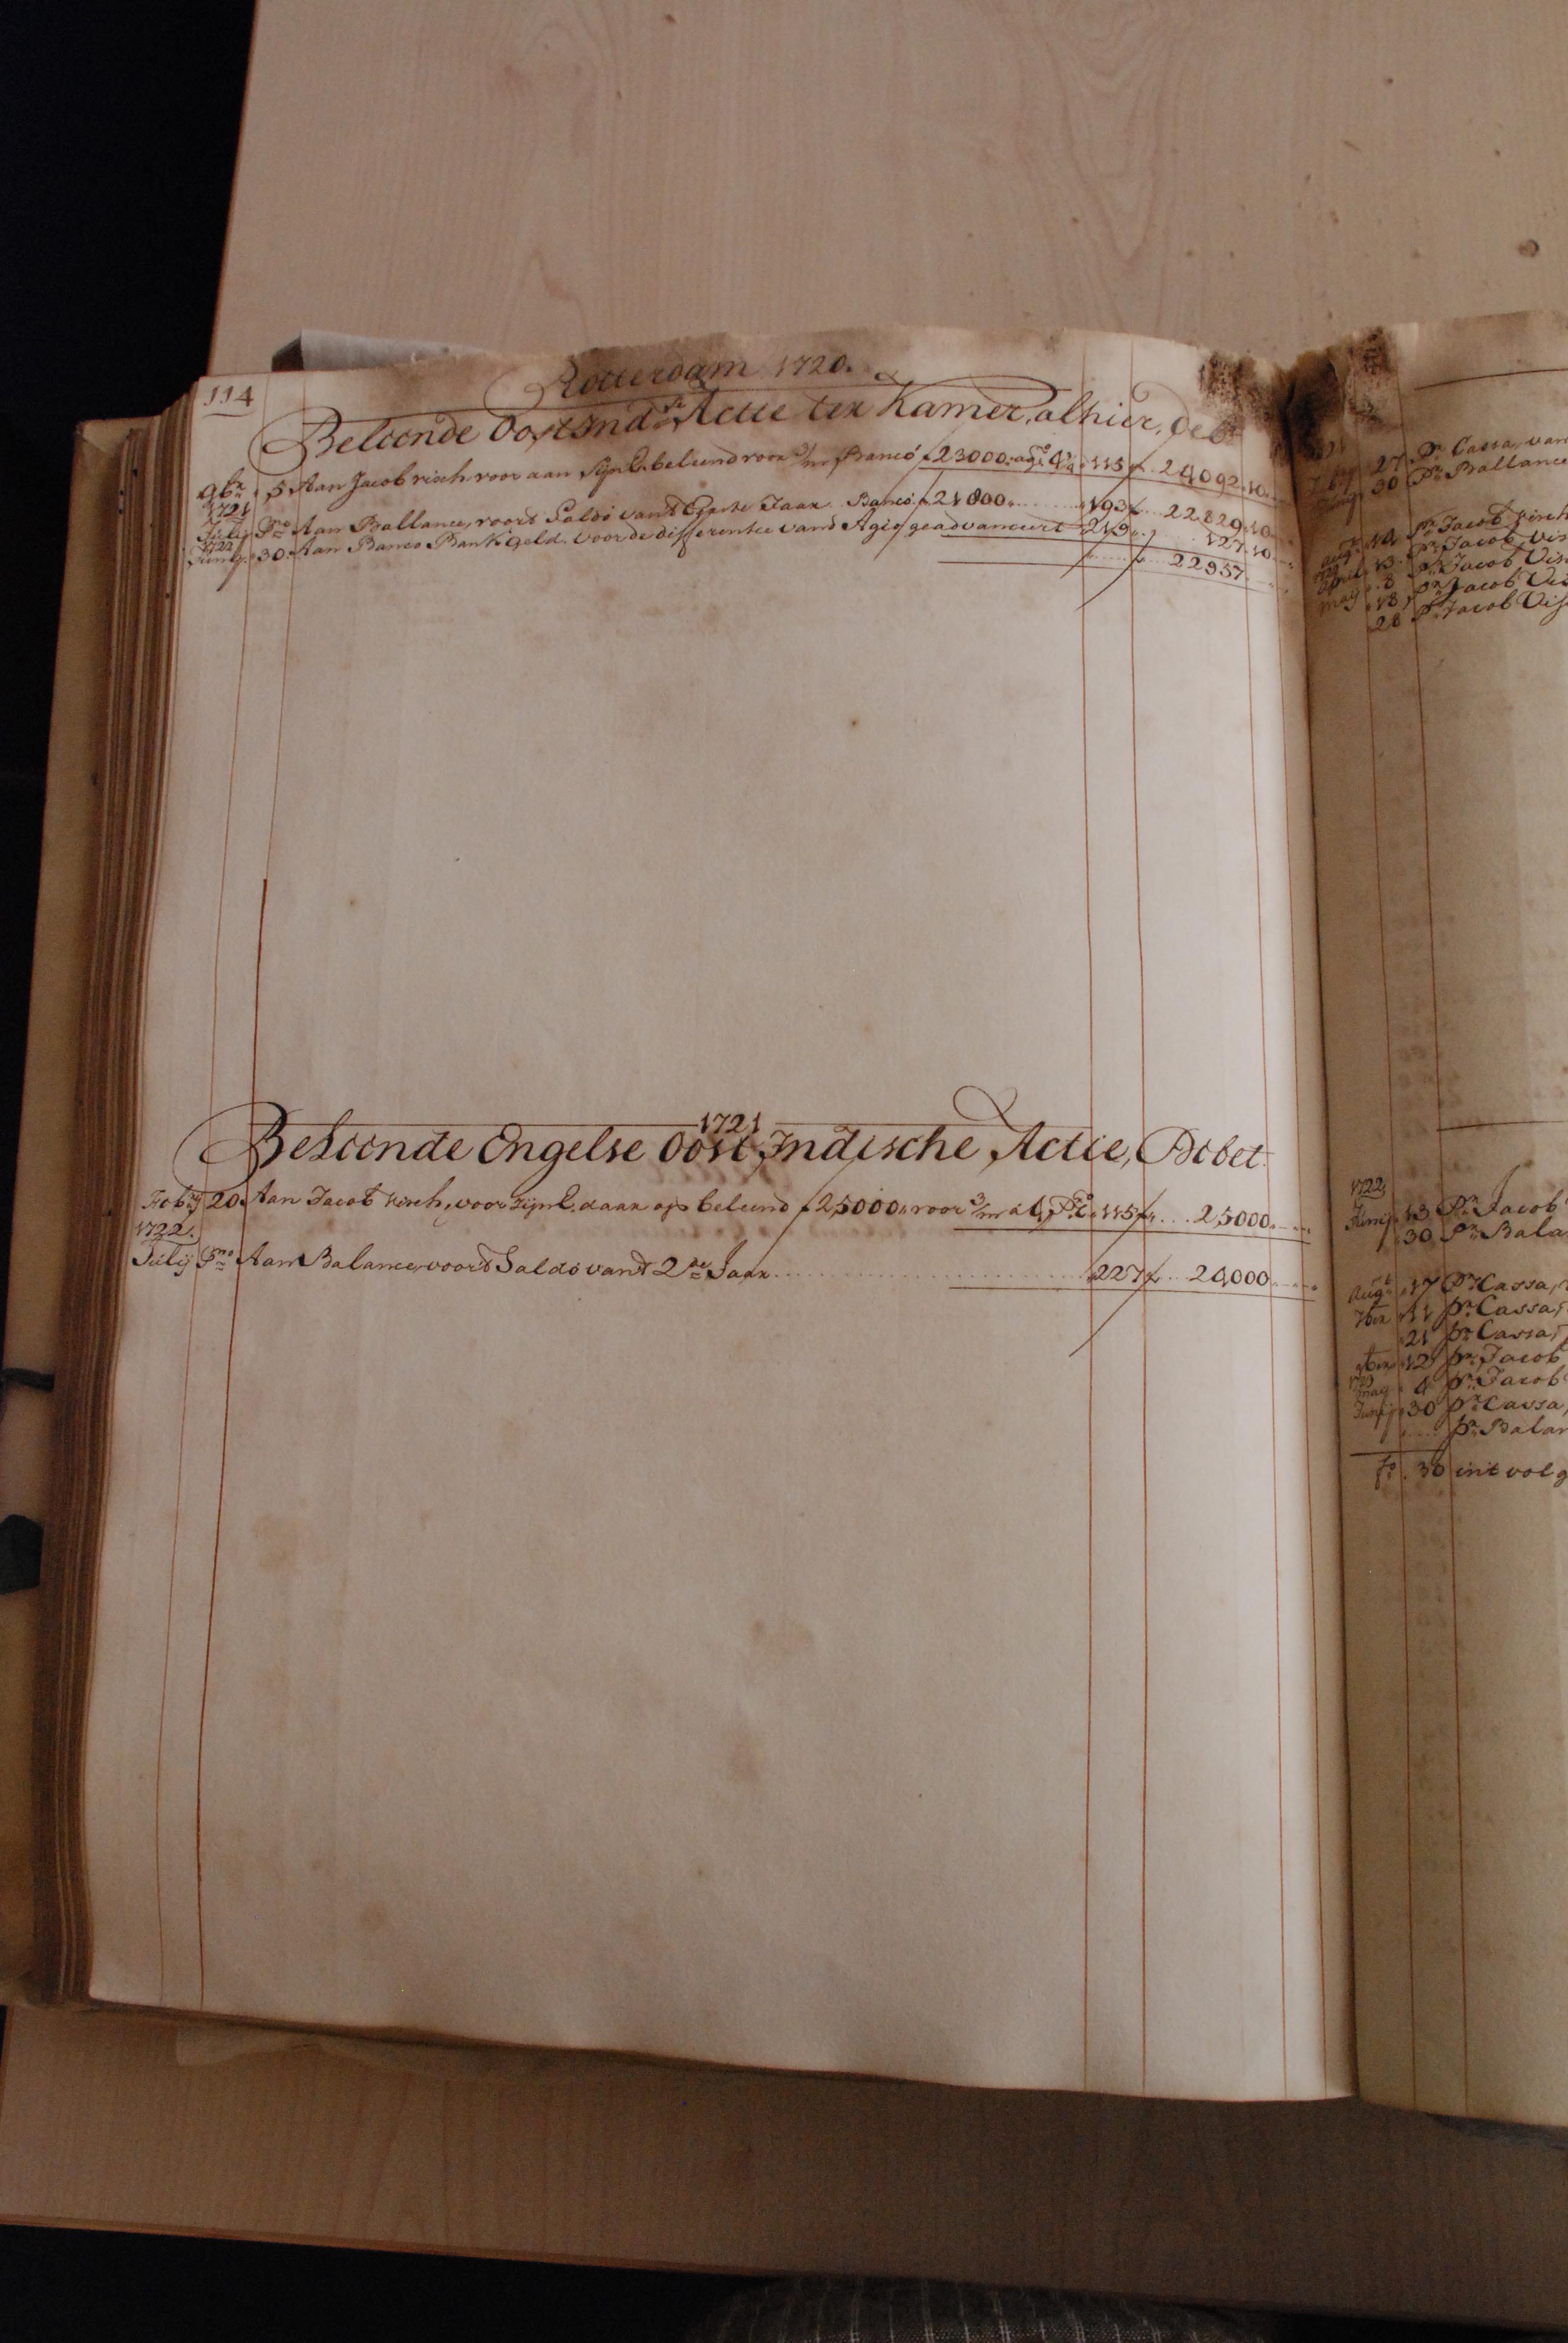 114
Rotterdam 1720.
Beleende Oost Ind:se Actie ter Kamer, alhier, Deb
9br. 5 Aan Jacob visch voor aan Sijn E. beleend voor 3/m Banco f 23000:- agio 4¾ 115 f 24092.10
1721
Julij Pmo Aan Ballance, voort Saldo vant Eerste Jaar Banco f 21800 193 f 22829.10
1722
Junij 30 Aan Banco Bank geld voor de differentie vand Agio geadvanceert 219 127.10
f 22957
1721
Beleende Engelse Oost Indische Actie, Debet
Feb:rij 20 Aan Jacob visch, voor zijn E. daar op beleend f 25000 voor 3/m a 4 P:Co 115 f 25000
1722
Julij Pmo Aan Balance, voort Saldo vant 2de Jaar 227 f 24000
27 Pr. Cassa, van
30 Pr. Ballance
Augt. 12 Pr. Jacob visch
April 13 Pr. Jacob Vis
Maij 3 Pr. Jacob Vis
18 Pr. Jacob Vis
28 Pr. Jacob Vis
1722
Junij 13 Pr. Jacob
30 Pr. Bala
Augt. 17 Pr. Cassa,
7ber 11 Pr. Cassa,
21 Pr. Cassa,
9ber 12 Pr. Jacob
1723
Maij 4 Pr. Jacob
Junij 30 Pr. Cassa,
Pr. Balan
fo. 30 int volg